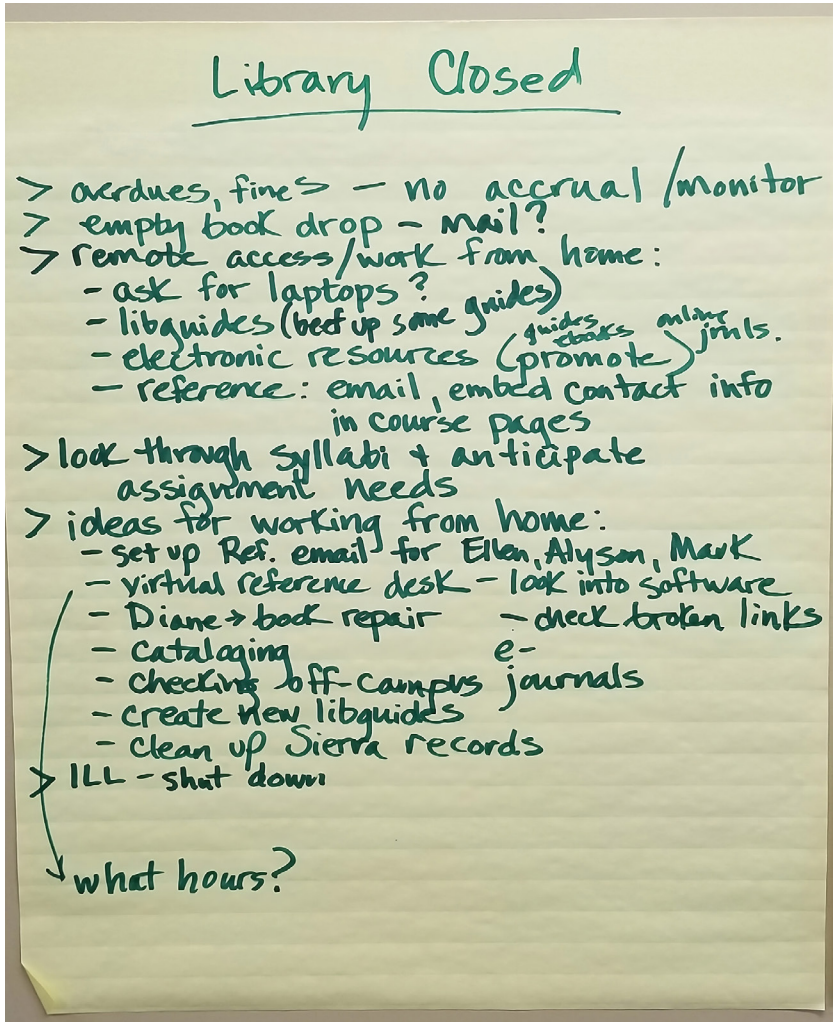 Library Closed
> overdues, fines - no accrual / monitor
> empty book drop - mail?
> remote access/work from home:
- ask for laptops?
- libguides (beef up some guides)
guides ebooks online
- electronic resources (promote) jrnls.
- reference: email, embed contact info
in course pages
> look through syllabi + anticipate
assignment needs
> ideas for working from home:
- set up Ref. email for Ellen, Alyson, Mark
- virtual reference desk - look into software
- Diane → book repair - check broken links
- cataloging e-
- checking off-campus journals
- create new libguides
- clean up Sierra records
> ILL - shut down
what hours?